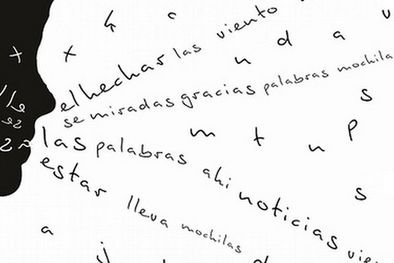 x c u
el hechar las viento n d a
x se miradas gracias palabras mochila
s
las palabras ahi noticias vie
m t n p
estar lleva mochilas
s
a j d